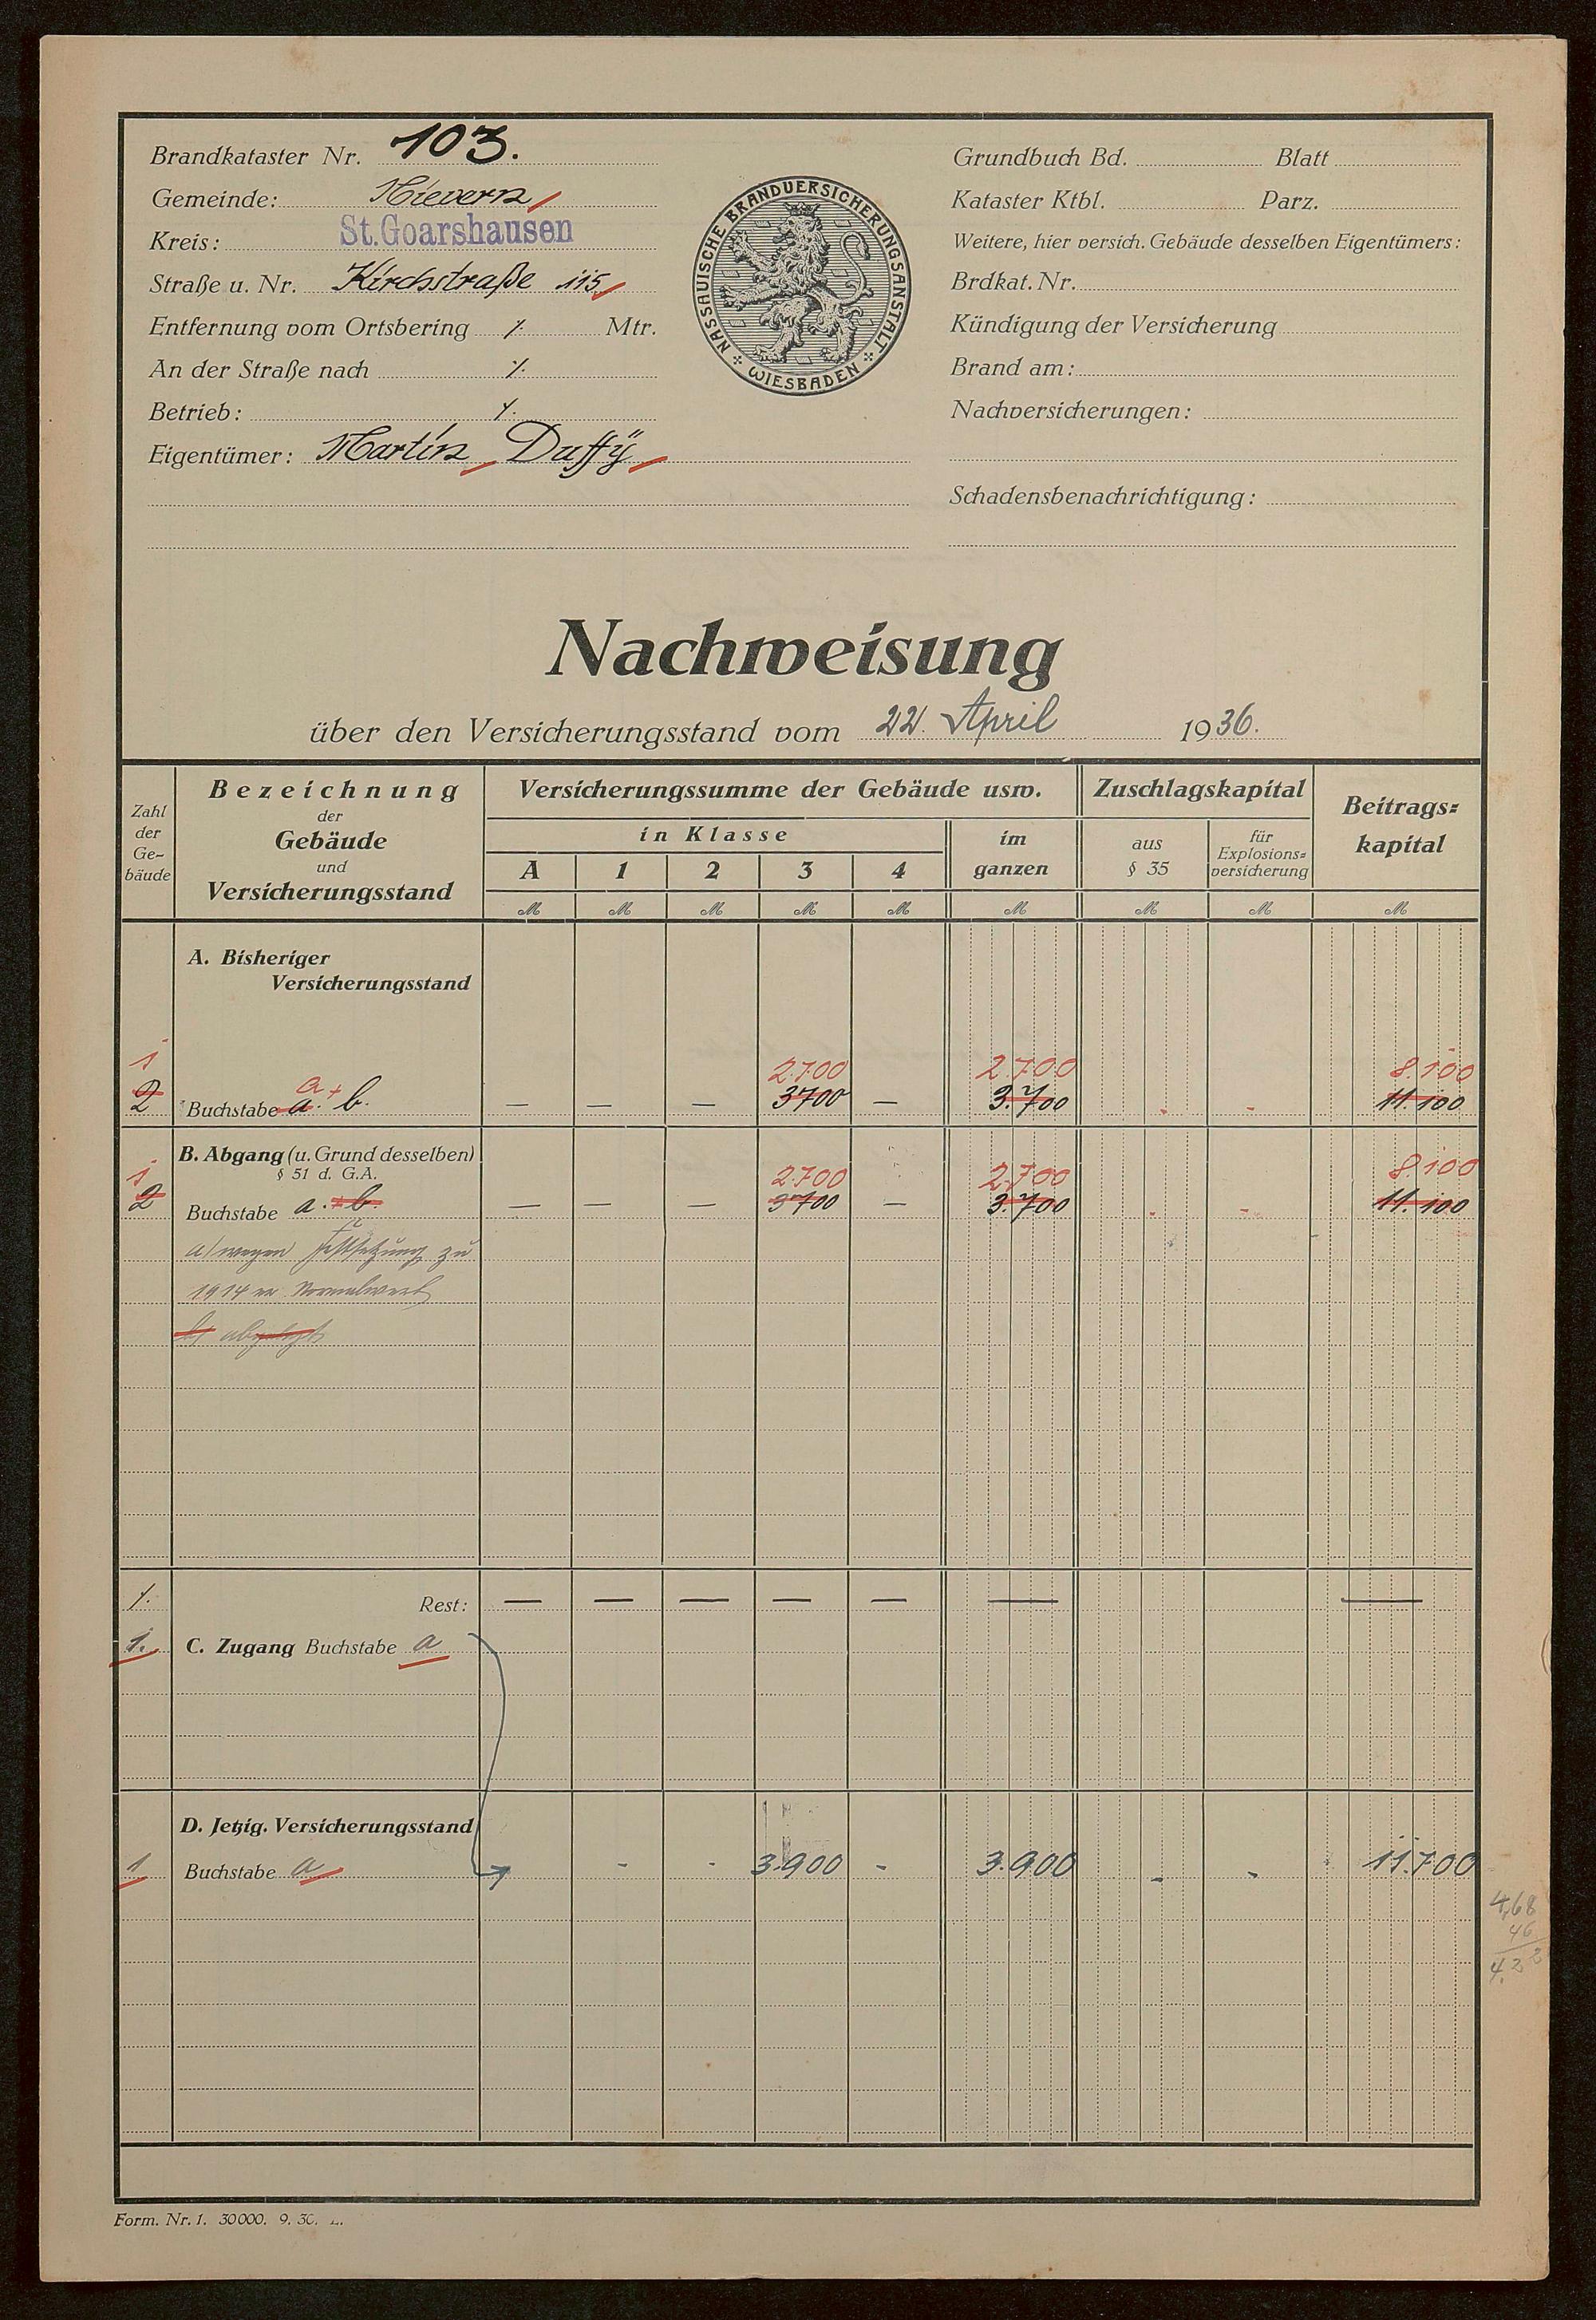 Brandkataster Nr. 103.
Gemeinde: Nievern
Kreis: St. Goarshausen
Straße u. Nr. Kirchstraße 115
Entfernung vom Ortsbering ⁒ Mtr.
An der Straße nach ⁒
Betrieb: ⁒
Eigentümer: Martin Duffÿ
NASSAUISCHE BRANDVERSICHERUNGSANSTALT
WIESBADEN
Grundbuch Bd. Blatt
Kataster Ktbl. Parz.
Weitere, hier versich. Gebäude desselben Eigentümers:
Brdkat. Nr.
Kündigung der Versicherung
Brand am:
Nachversicherungen:
Schadensbenachrichtigung:
Nachweisung
über den Versicherungsstand vom 22. April 1936.
Zahl der Ge- bäude
Bezeichnung der Gebäude und Versicherungsstand
Versicherungssumme der Gebäude usw.
in Klasse
A 1 2 3 4
im ganzen
Zuschlagskapital
aus § 35
für Explosions= versicherung
Beitrags= kapital
ℳ ℳ ℳ ℳ ℳ ℳ ℳ ℳ ℳ
A. Bisheriger
Versicherungsstand
1 a + 2.700 2.700 8.100
2 Buchstabe a. b. — — — 3700 — 3.700 - - 11.100
B. Abgang (u. Grund desselben)
§ 51 d. G.A.
1 2.700 2.700 8.100
2 Buchstabe a. + b. — — — 3700 — 3.700 - - 11.100
a/ wegen Festsetzung zu
1914 er Normalwert
b/ abgelegt
⁒ Rest: — — — — — — —
1. C. Zugang Buchstabe a
D. Jetzig. Versicherungsstand
1 Buchstabe a - - 3.900 - 3.900 - - 11.700
4,68
46
4.22
Form. Nr. 1. 30000. 9. 30.